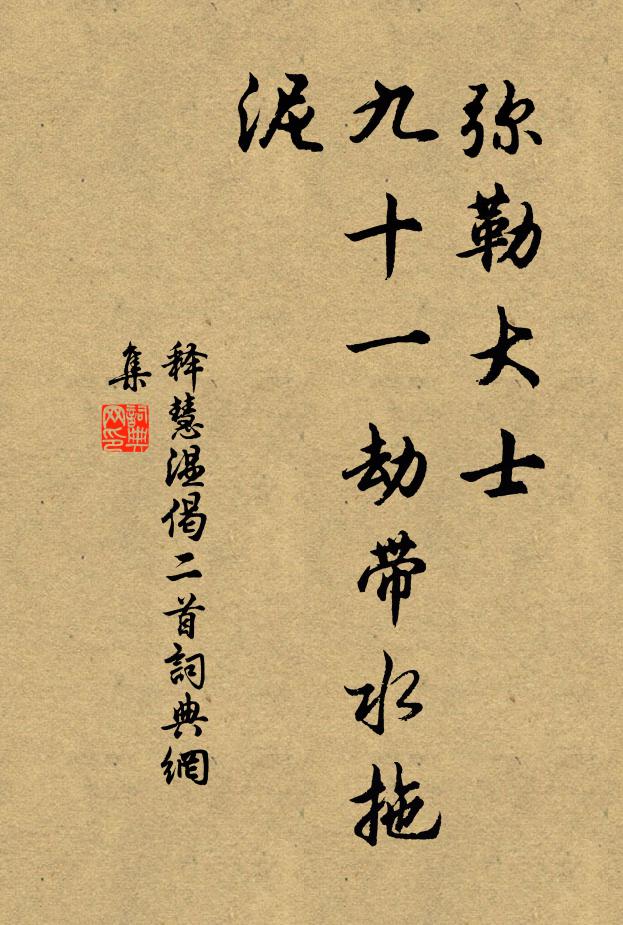 弥勒大士
九十一劫带水拖
泥
释慧温偈二首詞典網
集
詞典网印